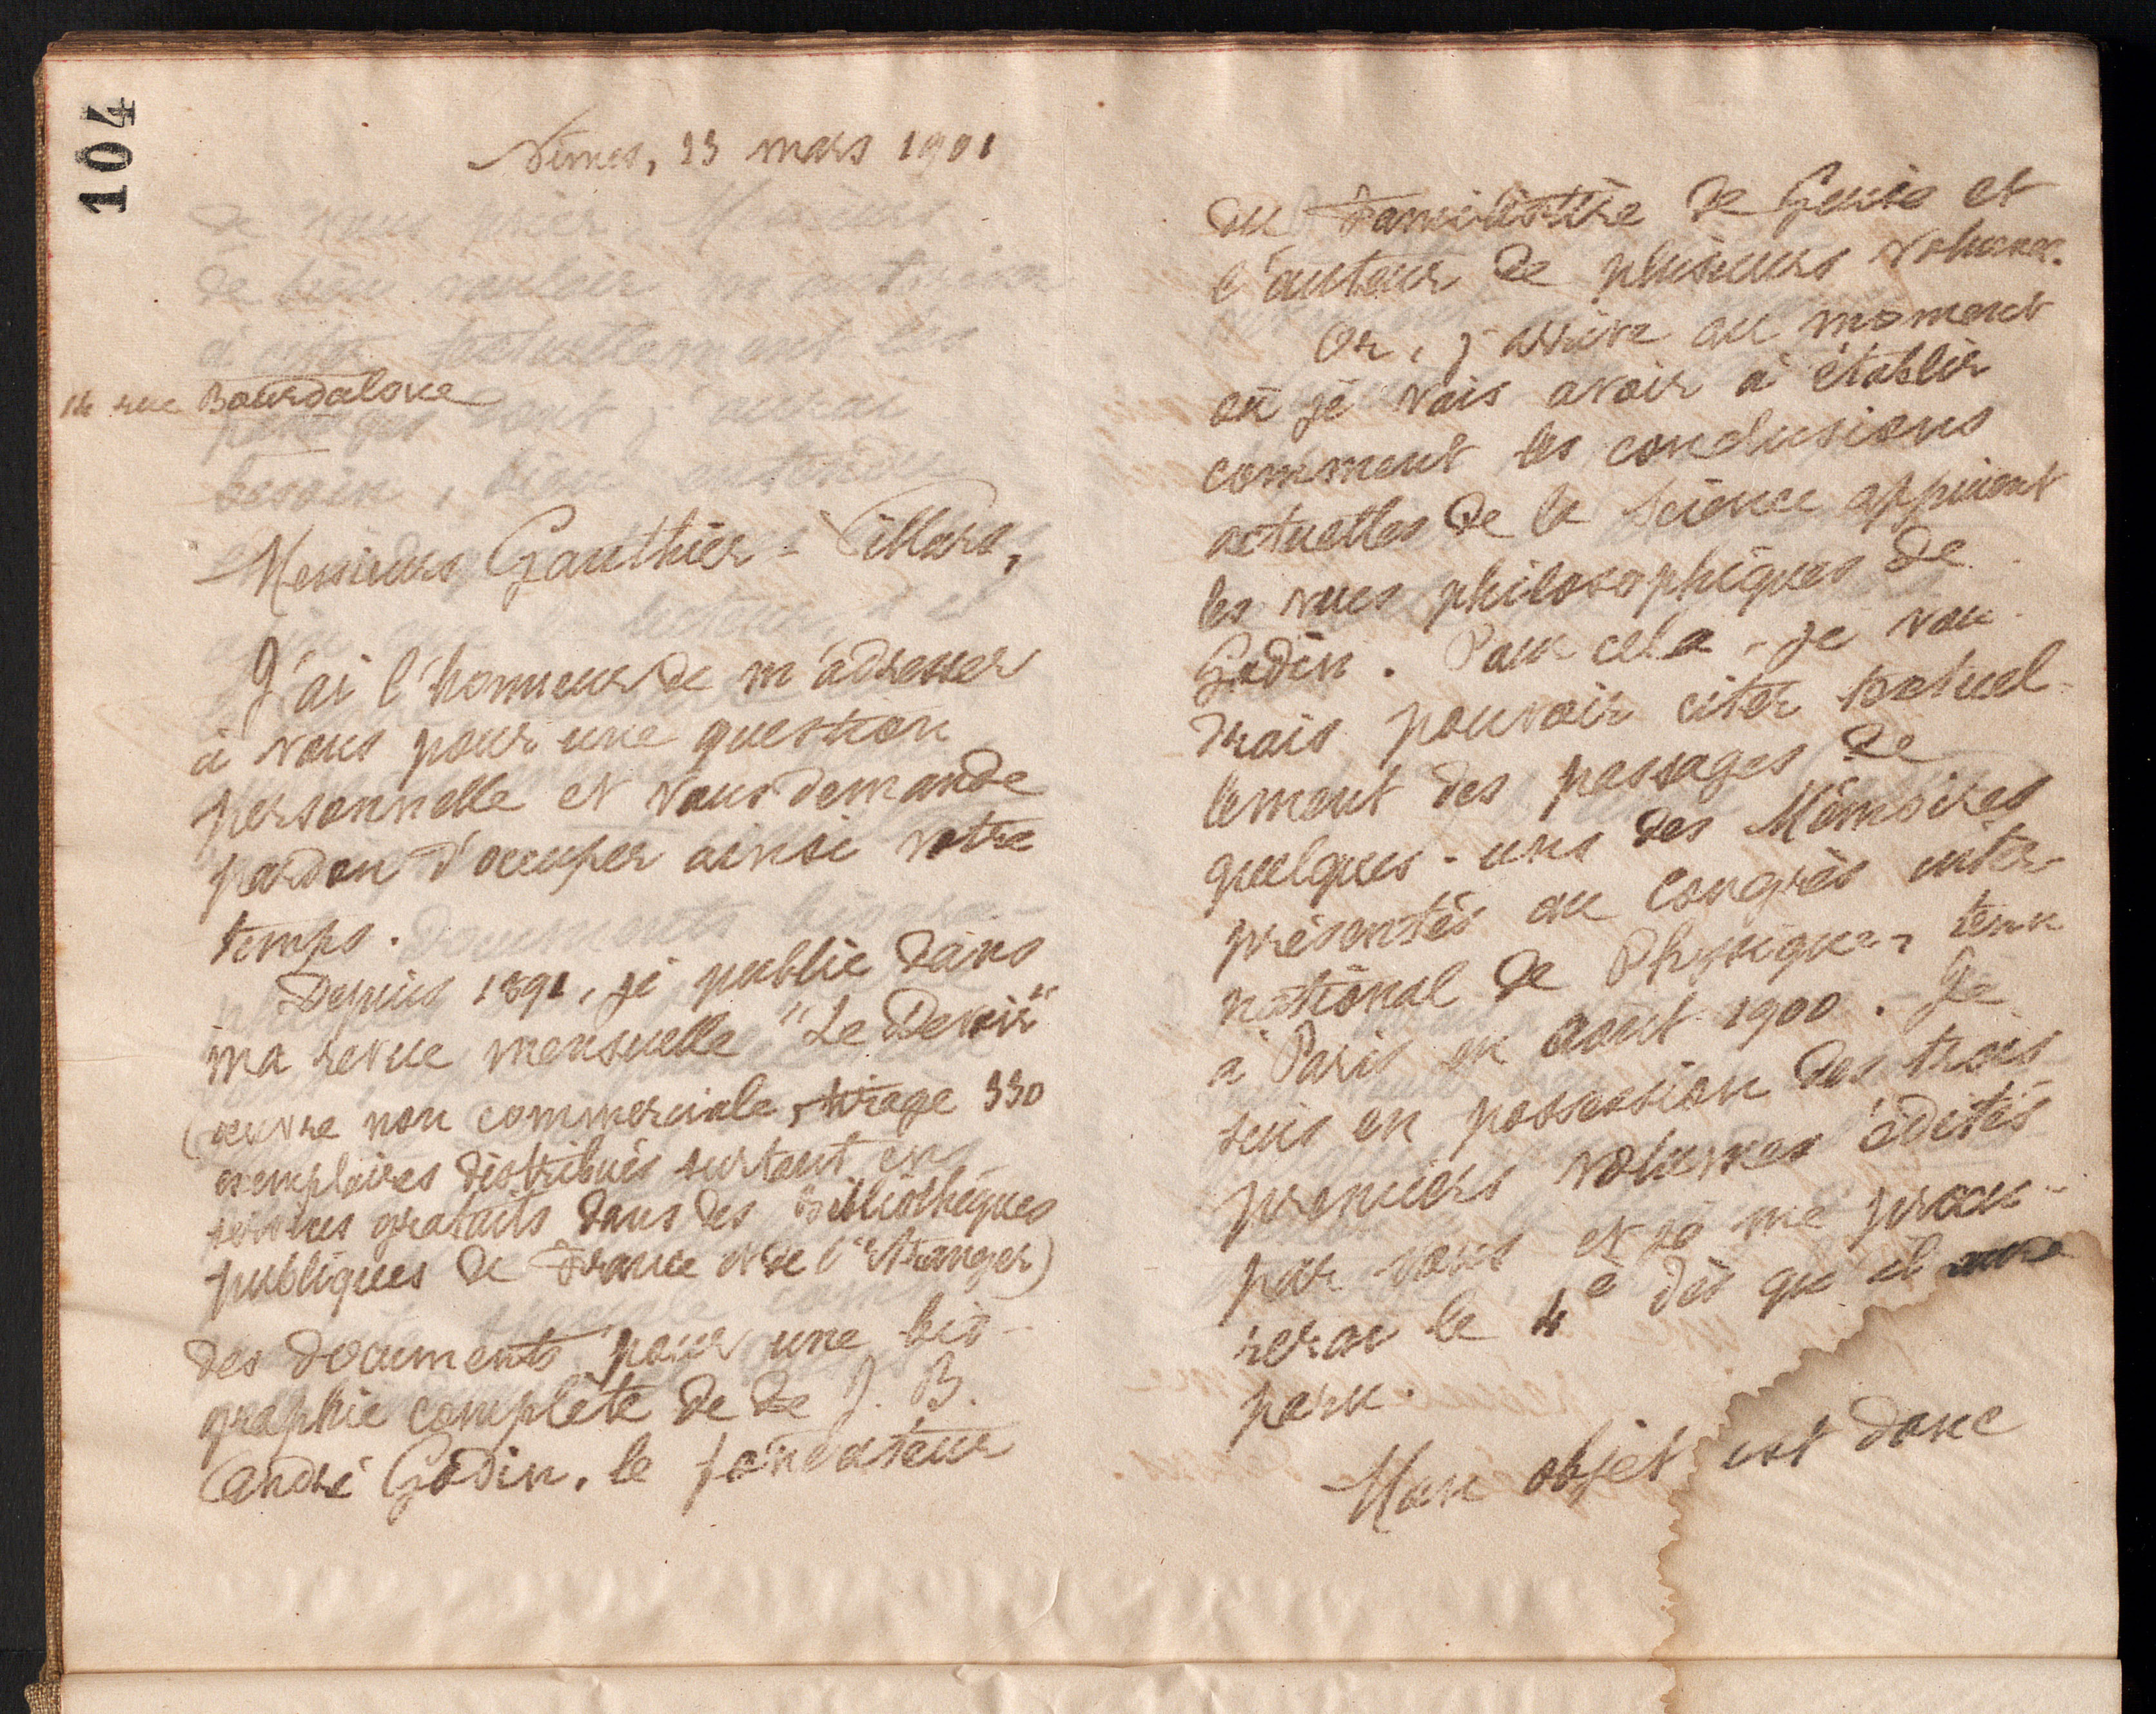 104
Nîmes, 23 mars 1901
14 rue Bourdaloue
Messieurs Gauthier-Villars,
J'ai l'honneur de m'adresser
à vous pour une question
personnelle et vous demande
pardon d'occuper ainsi votre
temps.
Depuis 1891, je publie dans
ma revue mensuelle "Le Devoir"
(œuvre non commerciale, tirage 330
exemplaires distribués surtout en
services gratuits dans des Bibliothèques
publiques de France et de l'Etranger)
des documents pour une bio-
graphie complète de de J. B.
André Godin, le fondateur
du Familistère de Guise et
l'auteur de plusieurs volumes.
Or, j'arrive au moment
où je vais avoir à établir
comment les conclusions
actuelles de la Science appuient
les vues philosophiques de
Godin. Pour cela, je vou-
drais pouvoir citer textuel-
lement des passages de
quelques-uns des Mémoires
présentés au Congrès inter-
national de Physique, tenu
à Paris en août 1900. Je
suis en possession des trois
premiers volumes édités
par vous et je me procu-
rerai le 4e dès qu'il aura
paru.
Mon objet est donc